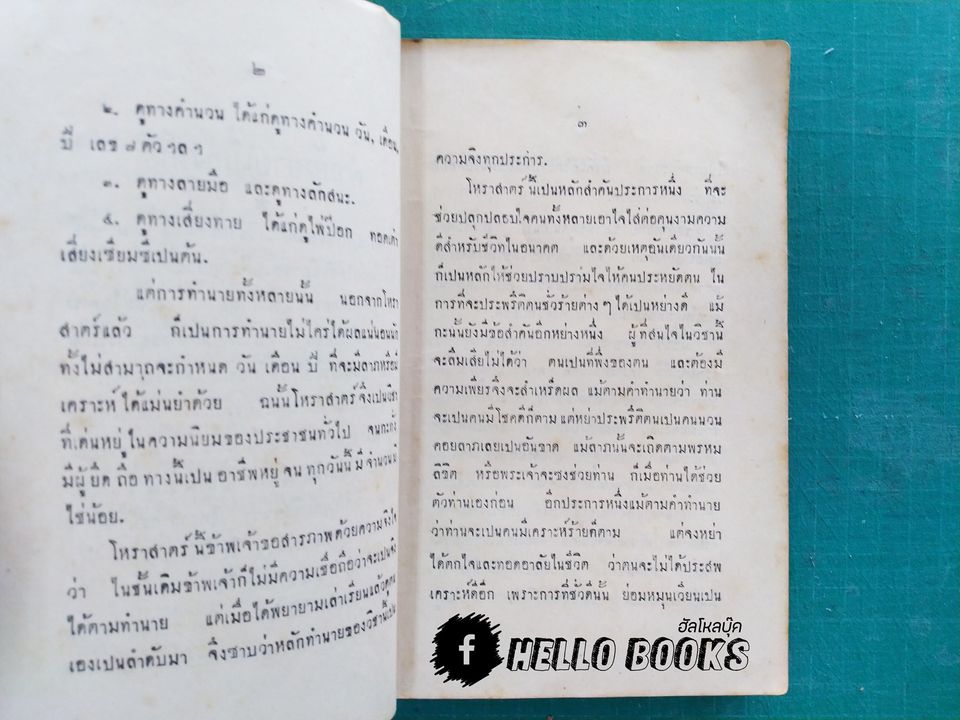 ๒
๒. ดูทางคำนวน ได้แก่ดูทางคำนวน วัน, เดือน,
ปี เลข ๗ ตัว ฯลฯ
๓. ดูทางลายมือ และดูทางลักสนะ.
๔. ดูทางเสี่ยงทาย ได้แก่ดูไพ่ป๊อก ทอดเต๋า
เสี่ยงเซียมซีเปนต้น.
แต่การทำนายทั้งหลายนั้น นอกจากโหรา
สาตร์แล้ว ก็เปนการทำนายไม่ใคร่ได้ผลแน่นอนนัก
ทั้งไม่สามาถจะกำหนด วัน เดือน ปี ที่จะมีลาภหรือมี
เคราะห์ ได้แม่นยำด้วย ฉนั้นโหราสาตร์ จึงเปนวิชา
ที่เด่นหยู่ ในความนิยมของประชาชนทั่วไป จนกะทั่ง
มีผู้ ยึด ถือ ทางนี้เปน อาชีพหยู่ จน ทุกวันนี้ มี จำนวน
ไช่น้อย.
โหราสาตร์ นี้ข้าพเจ้าขอสารภาพด้วยความจิงใจ
ว่า ในชั้นเดิมข้าพเจ้าก็ไม่มีความเชื่อถือว่าจะเปนจิง
ได้ตามทำนาย แต่เมื่อได้พยายามเล่าเรียนแล้วดูตน
เองเปนลำดับมา จึงซาบว่าหลักทำนายของวิชานี้เปน
๓
ความจิงทุกประการ.
โหราสาตร์ นี้เปนหลักสำคันประการหนึ่ง ที่จะ
ช่วยปลุกปลอบใจคนทั้งหลายเอาใจใส่ต่อคุนงามความ
ดีสำหรับชีวิทในอนาคต และด้วยเหตุอันเดียวกันนั้น
ก็เปนหลักให้ช่วยปราบปรามใจให้คนประหยัดตน ใน
การที่จะประพรึติตนชั่วร้ายต่าง ๆ ได้เปนหย่างดี แม้
กะนั้นยังมีข้อสำคันอีกหย่างหนึ่ง ผู้ ที่สนใจในวิชานี้
จะลืมเสียไม่ได้ว่า ตนเปนที่พึ่งของตน และต้องมี
ความเพียรจึงจะสำเหร็ดผล แม้ตามคำทำนายว่า ท่าน
จะเปนคนมีโชคดีก็ตาม แต่หย่าประพรึติตนเปนคนนวน
คอยลาภเลยเปนอันขาด แม้ลาภนั้นจะเกิดตามพรหม
ลิขิต หรือพระเจ้าจะซงช่วยท่าน ก็เมื่อท่านได้ช่วย
ตัวท่านเองก่อน อีกประการหนึ่งแม้ตามคำทำนาย
ว่าท่านจะเปนคนมีเคราะห์ร้ายก็ตาม แต่จงหย่า
ได้ตกใจและทอดอาลัยในชีวิต ว่าตนจะไม่ได้ประสพ
เคราะห์ดีอีก เพราะการที่ชั่วดีนั้น ย่อมหมุนเวียนเปน
ฮัลโหลบุ๊ค
f HELLO BOOKS